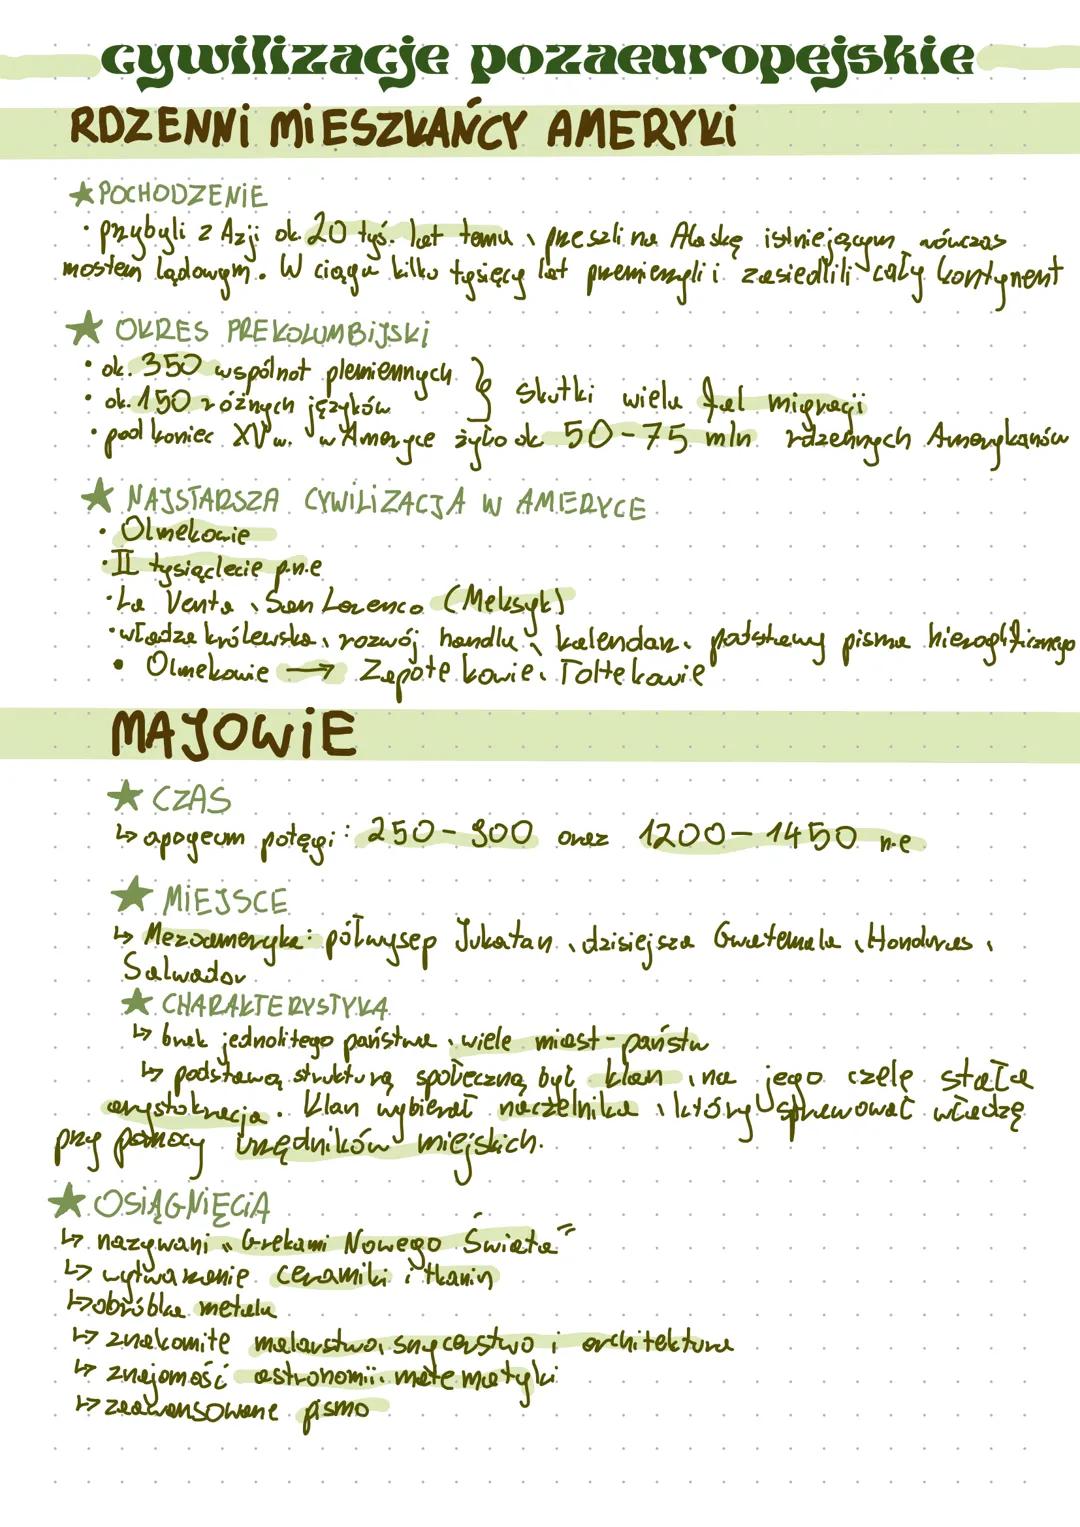 cywilizacje pozaeuropejskie
RDZENNI MIESZKAŃCY AMERYKI
★ POCHODZENIE
• przybyli z Azji ok. 20 tyś. lat temu, przeszli na Alaskę istniejącym wówczas
mostem lądowym. W ciągu kilku tysięcy lat przemierzyli i zasiedlili cały kontynent
★ OKRES PREKOLUMBIJSKI
• ok. 350 wspólnot plemiennych
• ok. 150 różnych języków } skutki wielu fal migracji
• pod koniec XV w. w Ameryce żyło ok 50-75 mln rdzennych Amerykanów
★ NAJSTARSZA CYWILIZACJA W AMERYCE
• Olmekowie
• II tysiąclecie p.n.e
• La Venta, San Lorenco (Meksyk)
• władza królewska, rozwój handlu, kalendarz, podstawy pisma hieroglificznego
• Olmekowie → Zapotekowie, Toltekowie
MAJOWIE
★ CZAS
↳ apogeum potęgi: 250-900 oraz 1200-1450 n.e
★ MIEJSCE
↳ Mezoameryka: półwysep Jukatan, dzisiejsza Gwatemala, Honduras,
Salwador
★ CHARAKTERYSTYKA
↳ brak jednolitego państwa, wiele miast-państw
↳ podstawą strukturą społeczną był klan, na jego czele stała
arystokracja. Klan wybierał naczelnika, który sprawował władzę
przy pomocy urzędników miejskich.
★ OSIĄGNIĘCIA
↳ nazywani "Grekami Nowego Świata"
↳ wytwarzanie ceramiki i tkanin
↳ obróbka metalu
↳ znakomite malarstwo, snycerstwo i architektura
↳ znajomość astronomii, matematyki
↳ zaawansowane pismo